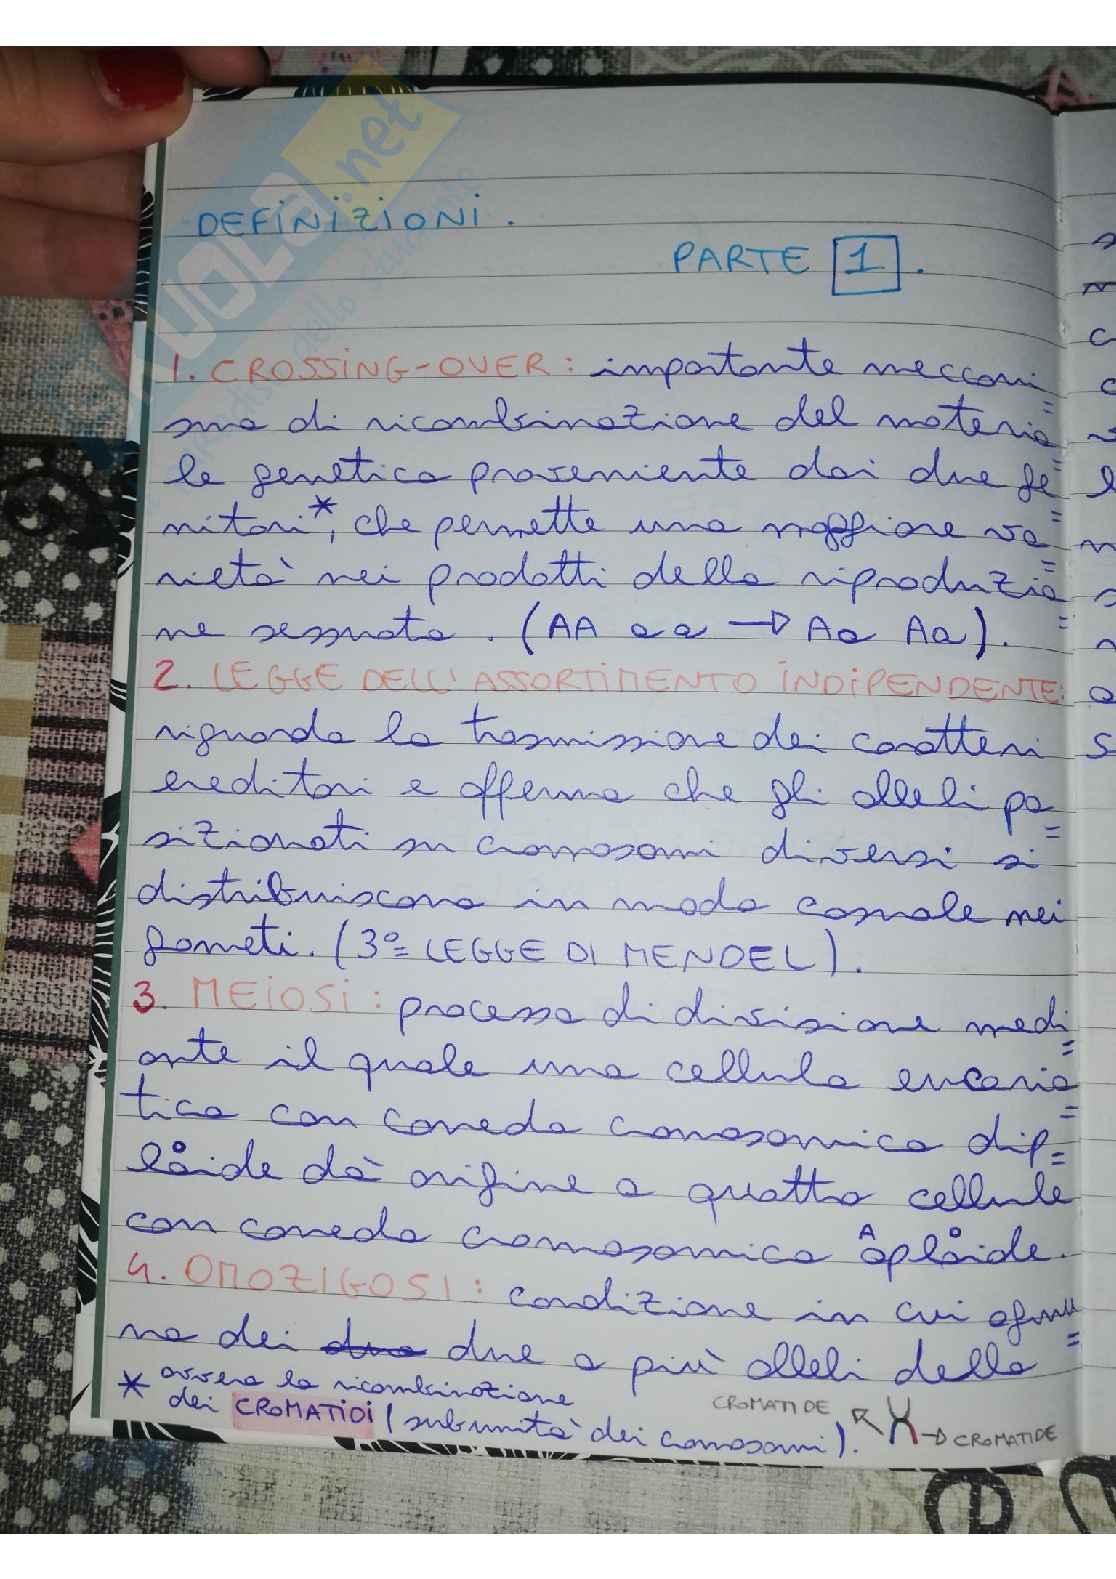 DEFINIZIONI.
PARTE 1.
1. CROSSING-OVER: importante meccani=
smo di ricombinazione del materia=
le genetico proveniente dai due ge=
nitori*, che permette una maggiore va=
rietà nei prodotti della riproduzio=
ne sessuata. (AA aa → Aa Aa).
2. LEGGE DELL'ASSORTIMENTO INDIPENDENTE:
riguarda la trasmissione dei caratteri
ereditari e afferma che gli alleli po=
sizionati su cromosomi diversi si
distribuiscono in modo casuale nei
gameti. (3ª LEGGE DI MENDEL).
3. MEIOSI: processo di divisione medi=
ante il quale una cellula eucario=
tica con corredo cromosomico dip=
loide dà origine a quattro cellule
con corredo cromosomico aploide.
4. OMOZIGOSI: condizione in cui ognu=
no dei due o più alleli dello
* ovvero la ricombinazione
dei CROMATIDI (subunità dei cromosomi).
CROMATIDE
CROMATIDE
net